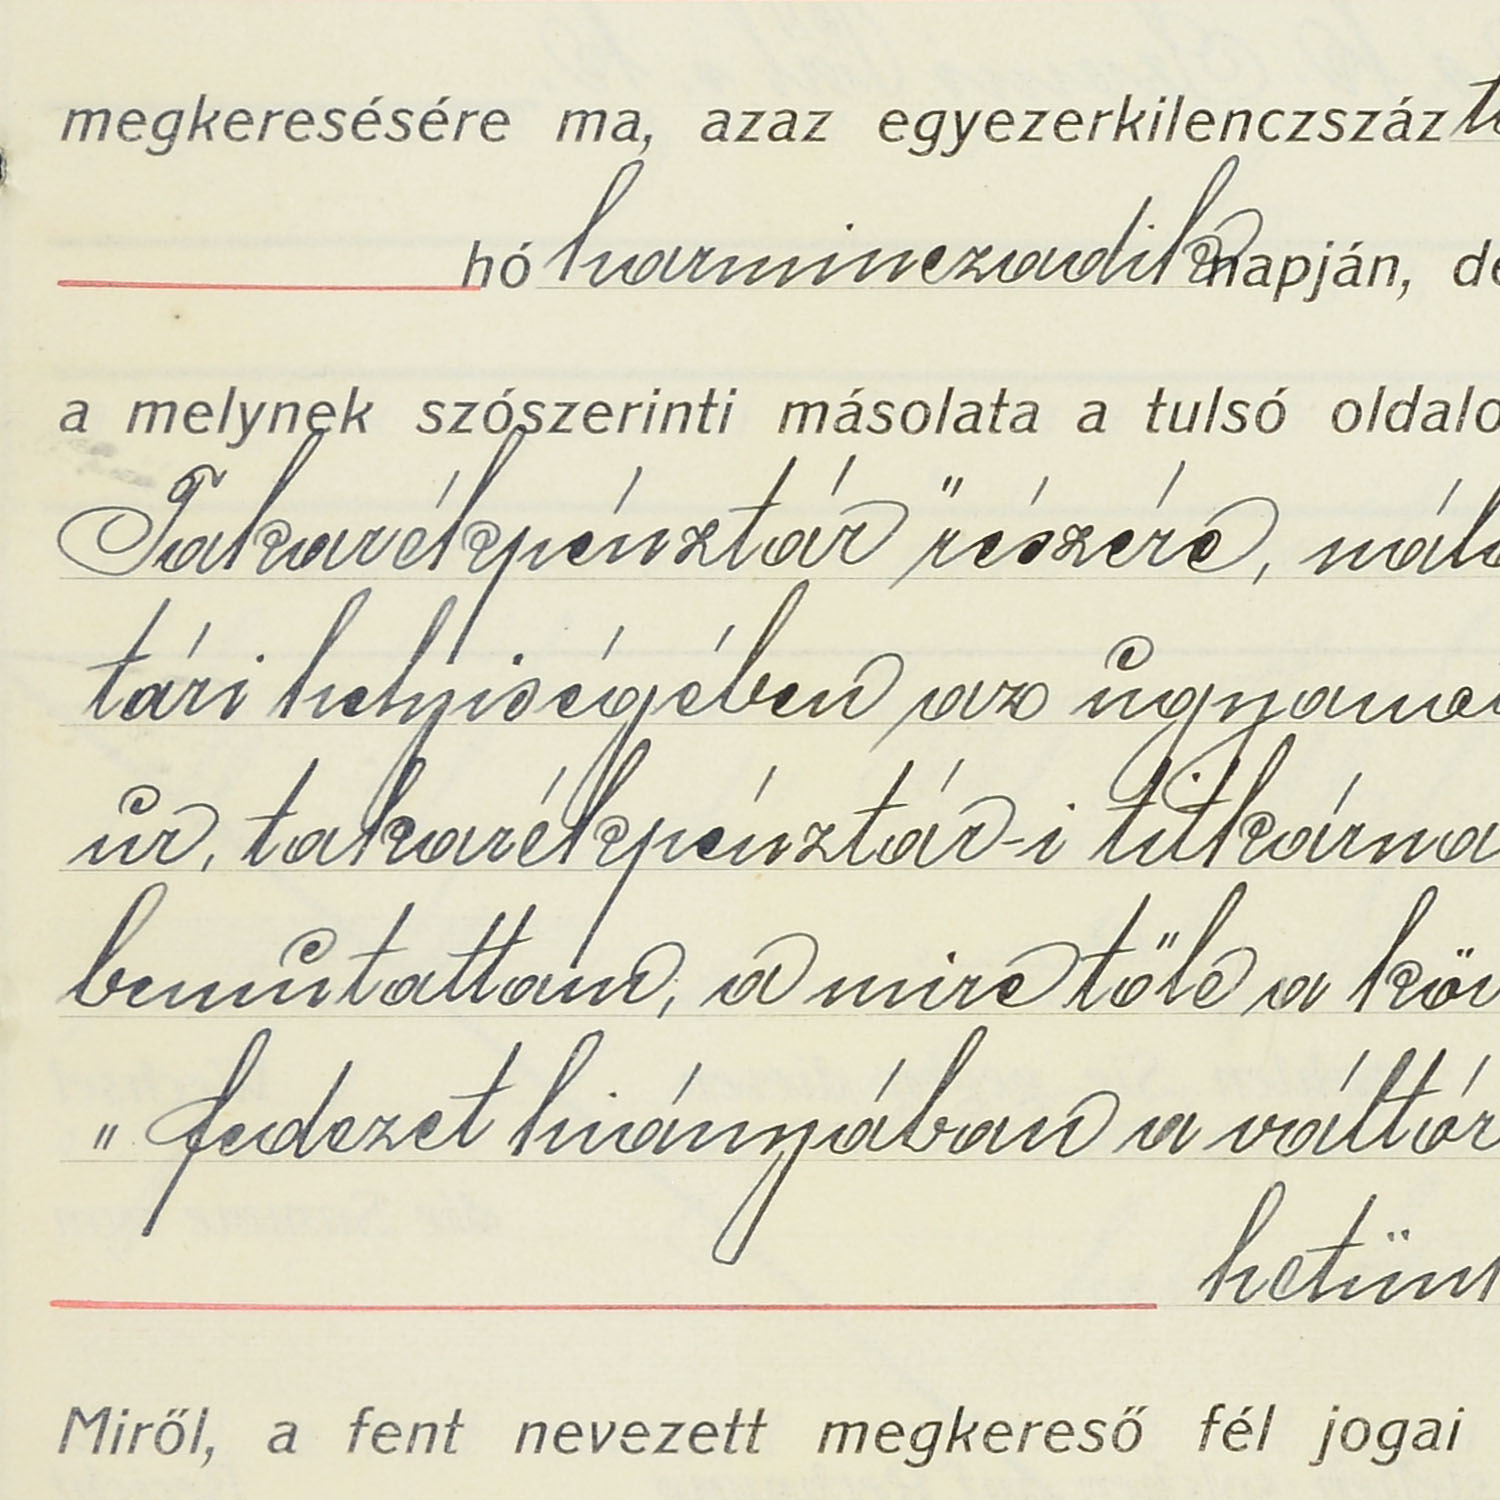 megkeresésére ma, azaz egyezerkilenczszáz
hó harminczadik napján, de
a melynek szószerinti másolata a tulsó oldalo
Takarékpénztár" részére, nála
tári helyiségében az ugyanez
úr, takarékpénztár-i titkárna
bemutattam, a mire tőle a köv
" fedezet hiányában a váltór
hetünk
Miről, a fent nevezett megkereső fél jogai